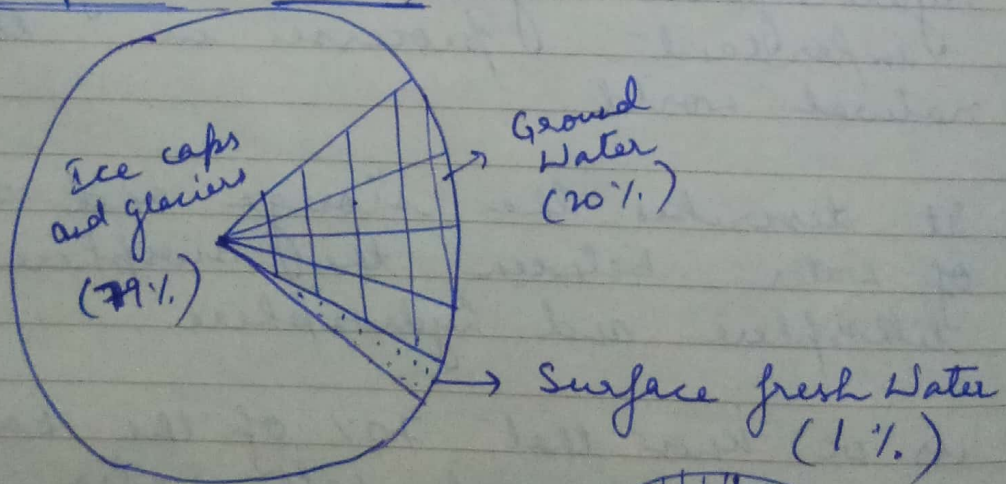 Ice caps
and glaciers
(79%)
Ground
Water
(20%)
Surface fresh Water
(1%)